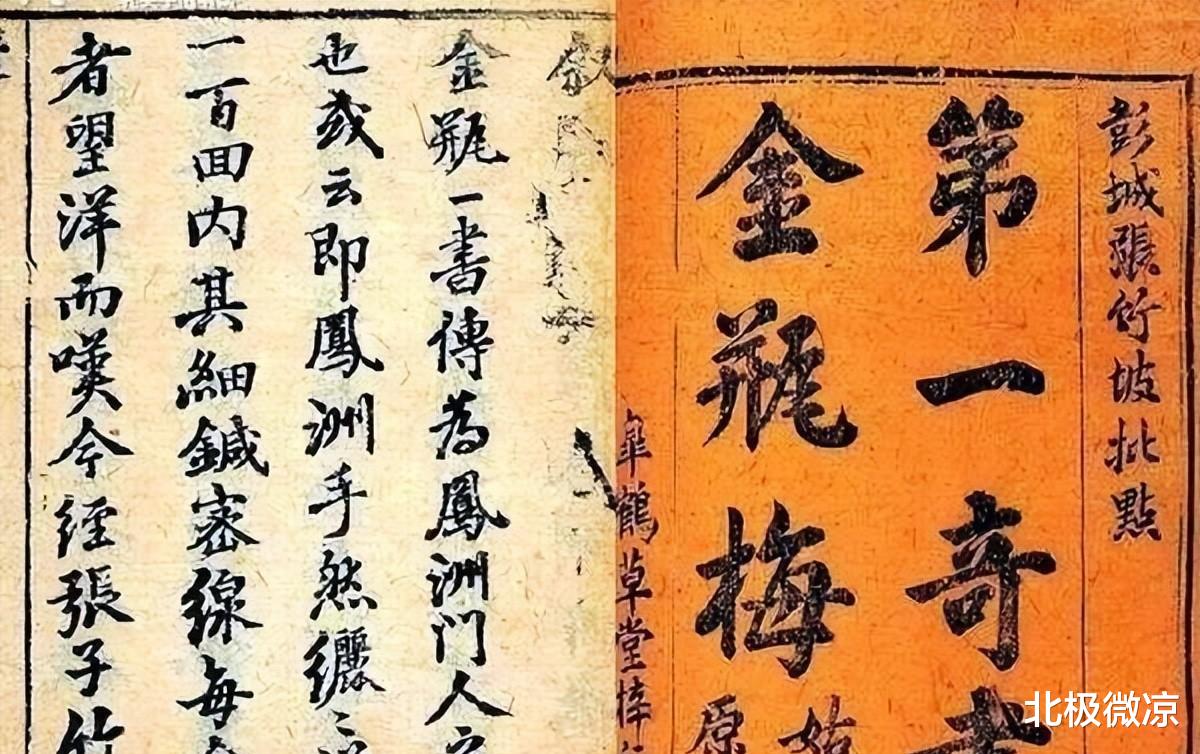 彭城張竹坡批點
第一奇書
金瓶梅
原
姑
皐鶴草堂梓
金瓶一書傳為鳳洲門人之
也或云即鳳洲手然纚
一百回内其細鍼密線每
者望洋而嘆今經張子竹
北极微凉